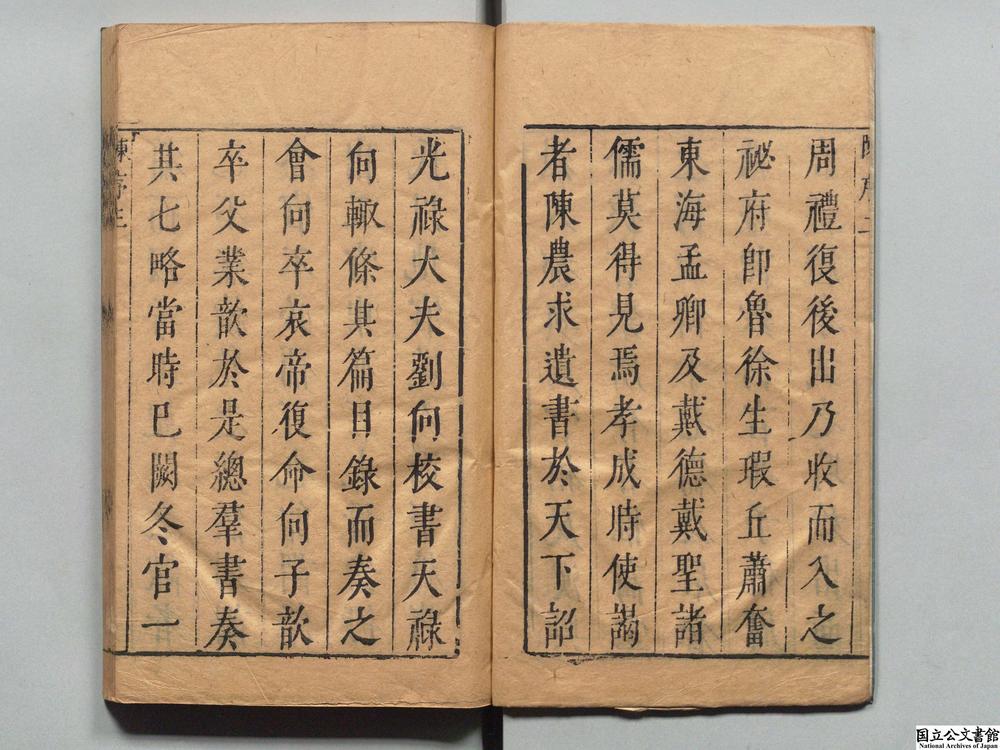 周禮復後出乃收而入之
祕府卽魯徐生瑕丘蕭奮
東海孟卿及戴德戴聖諸
儒莫得見焉孝成時使謁
者陳農求遺書於天下詔
光祿大夫劉向校書天祿
向輙條其篇目錄而奏之
會向卒哀帝復命向子歆
卒父業歆於是總羣書奏
其七略當時已闕冬官一
国立公文書館
National Archives of Japan